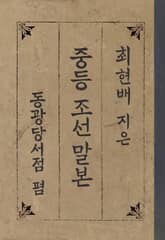 최현배 지은
중등 조선 말본
동광당서점 펌